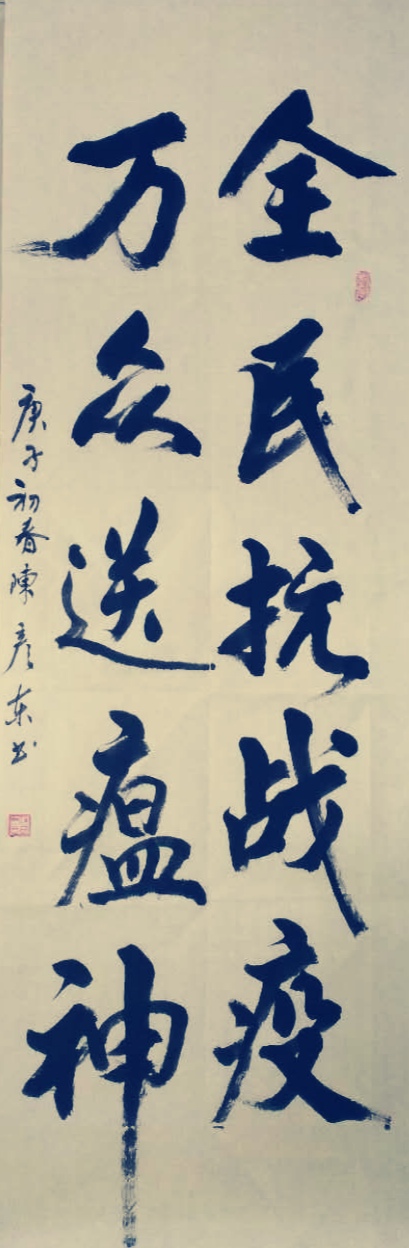 全民抗战疫
万众送瘟神
庚子初春陳彦东书